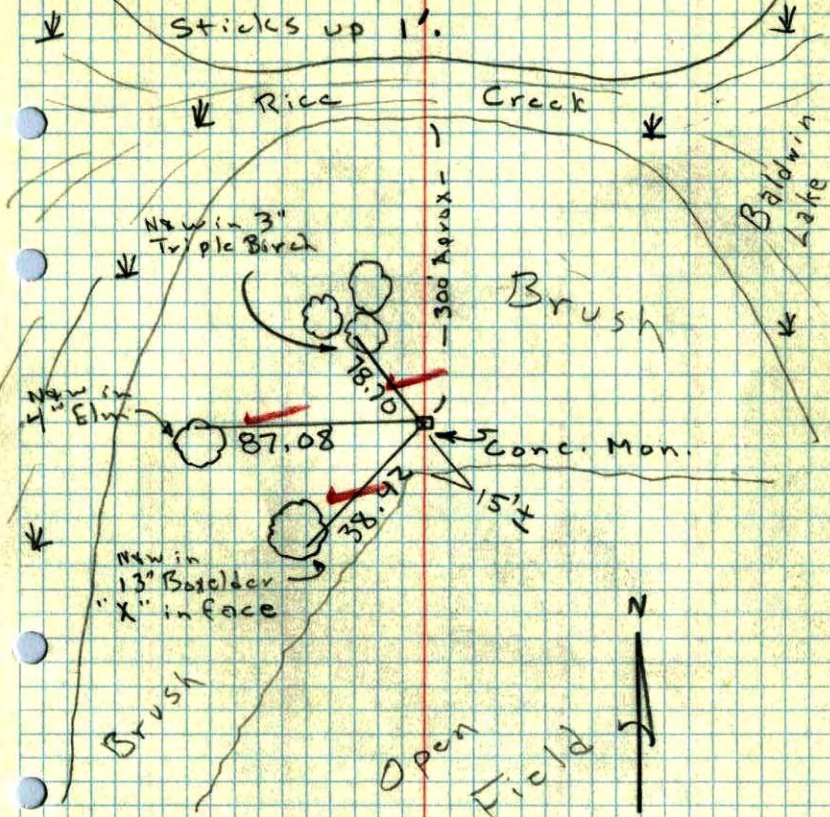 Sticks up 1'.
Rice Creek
Baldwin
Lake
N&W in 3"
Triple Birch
-300' Aprox-
Brush
78.70
N&W in
4" Elm
87.08
Conc. Mon.
38.92
15'±
N&W in
13" Boxelder
"X" in face
N
Brush
Open
Field